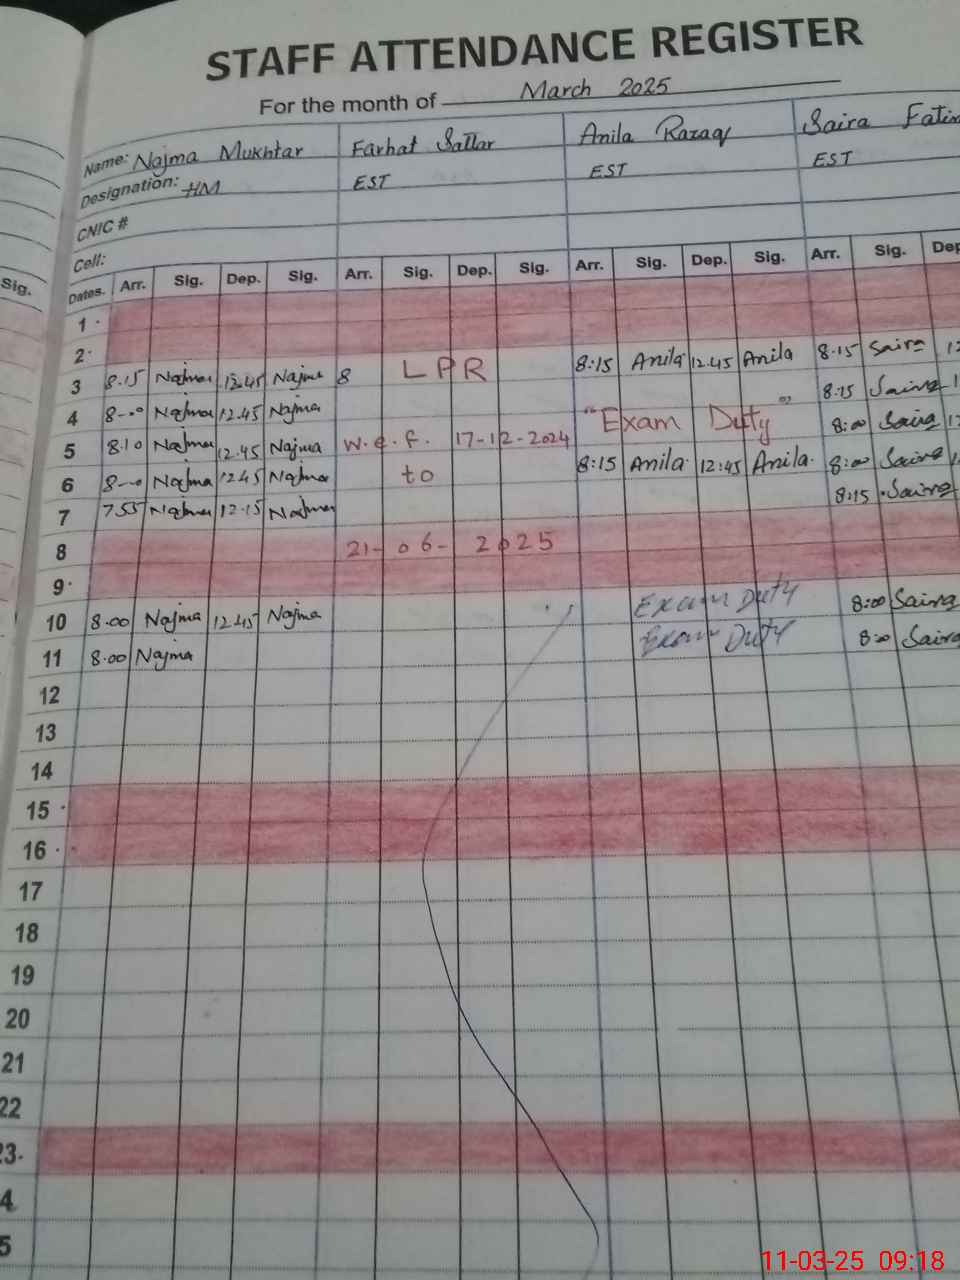 STAFF ATTENDANCE REGISTER
For the month of March 2025
Name: Najma Mukhtar Farhat Sattar Anila Razaq Saira
Designation: HM EST EST EST
CNIC #
Cell:
Sig. Dates. Arr. Sig. Dep. Sig. Arr. Sig. Dep. Sig. Arr. Sig. Dep. Sig. Arr. Sig. Dep
1
2
3 8.15 Najma 12.45 Najma 8 LPR 8:15 Anila 12.45 Anila 8.15 Saira
4 8-00 Najma 12.45 Najma 8:15 Saira
5 8.10 Najma 12.45 Najma w.e.f. 17-12-2024 "Exam Duty" 8:00 Saira
6 8-00 Najma 12.45 Najma to 8:15 Anila 12:45 Anila 8:00 Saira
7 755 Najma 12.15 Najma 8:15 Saira
8 21-06-2025
9
10 8.00 Najma 12.45 Najma Exam Duty 8:00 Saira
11 8.00 Najma Exam Duty 8:00 Saira
12
13
14
15
16
17
18
19
20
21
22
23
4
5
11-03-25 09:18